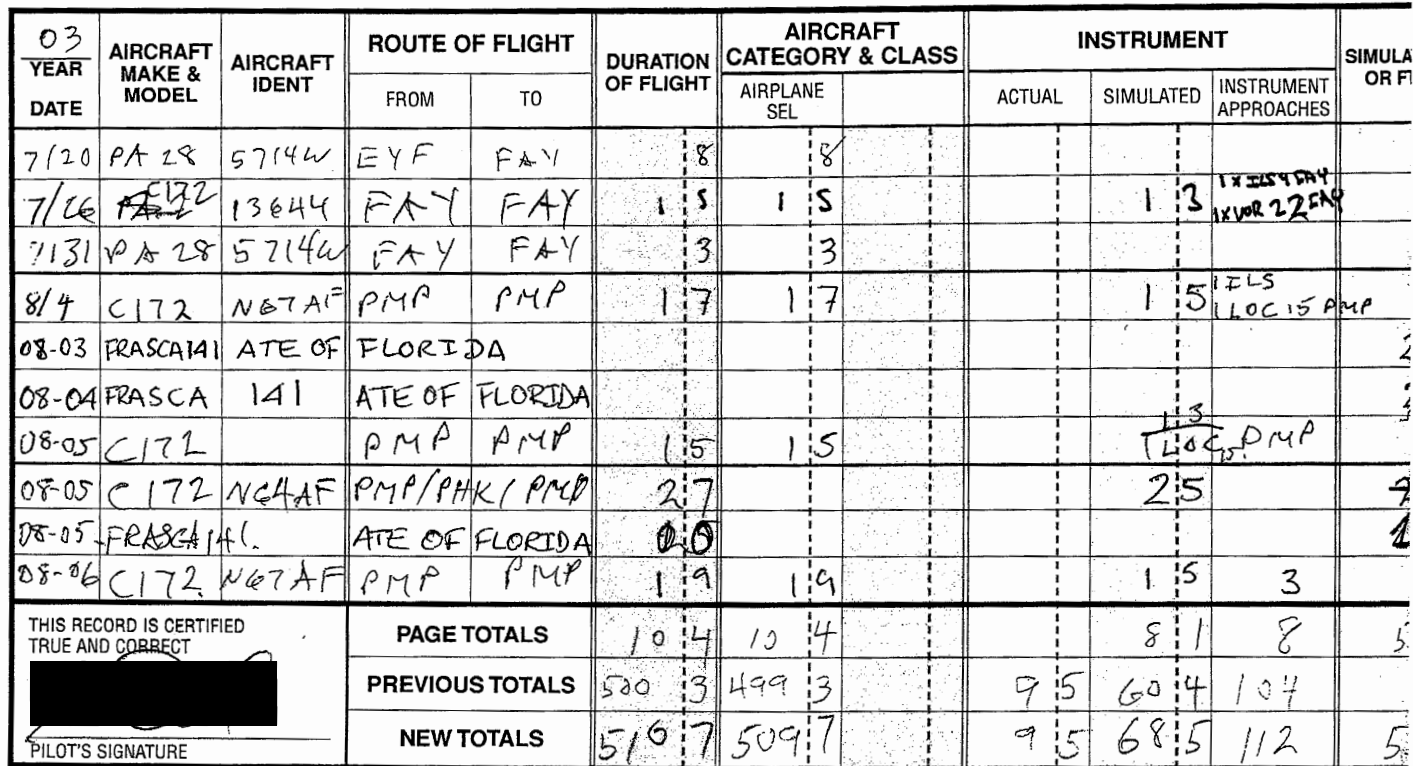 03 YEAR DATE AIRCRAFT MAKE & MODEL AIRCRAFT IDENT ROUTE OF FLIGHT FROM TO DURATION OF FLIGHT AIRCRAFT CATEGORY & CLASS AIRPLANE SEL INSTRUMENT ACTUAL SIMULATED INSTRUMENT APPROACHES SIMULA OR FT
7/20 PA 28 5714W EYF FAY 8 8
7/26 C172 13644 FAY FAY 1 5 1 5 1 3 1 x ILS 4 FAY 1x VOR 22 FAY
7/31 PA 28 5714W FAY FAY 3 3
8/4 C172 N67AF PMP PMP 1 7 1 7 1 5 1 ILS 1 LOC 15 PMP
08-03 FRASCA141 ATE OF FLORIDA 2
08-04 FRASCA 141 ATE OF FLORIDA
08-05 C172 PMP PMP 1 5 1 5 1 3 1 LOC 15 PMP
08-05 C172 N64AF PMP/PHK/PMP 2 7 2 5
08-05 FRASCA141. ATE OF FLORIDA 1
08-06 C172 N67AF PMP PMP 1 9 1 9 1 5 3
THIS RECORD IS CERTIFIED TRUE AND CORRECT
PAGE TOTALS 10 4 10 4 8 1 8 5
PREVIOUS TOTALS 500 3 499 3 9 5 60 4 104
NEW TOTALS 510 7 509 7 9 5 68 5 112 5
PILOT'S SIGNATURE